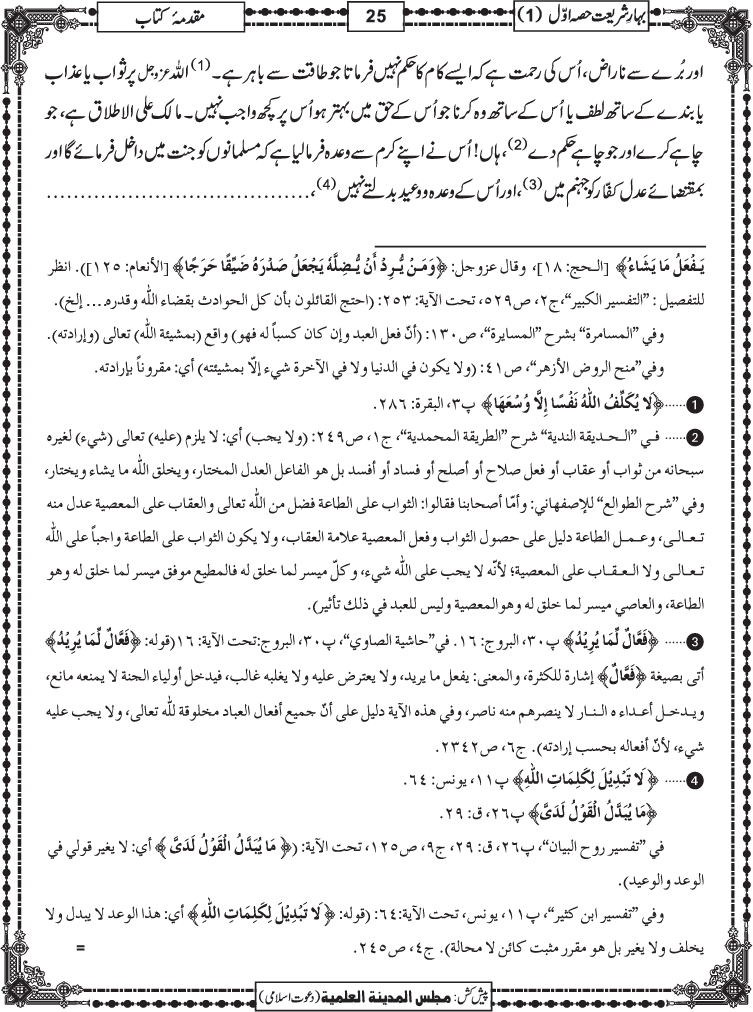 بہارِ شریعت حصہ اوّل (1)
25
مقدمۂ کتاب
اور بُرے سے ناراض، اُس کی رحمت ہے کہ ایسے کام کا حکم نہیں فرماتا جو طاقت سے باہر ہے۔ (1) اللہ عزوجل پر ثواب یا عذاب
یا بندے کے ساتھ لطف یا اُس کے ساتھ وہ کرنا جو اُس کے حق میں بہتر ہو اُس پر کچھ واجب نہیں۔ مالک علی الاطلاق ہے، جو
چاہے کرے اور جو چاہے حکم دے (2)، ہاں! اُس نے اپنے کرم سے وعدہ فرما لیا ہے کہ مسلمانوں کو جنت میں داخل فرمائے گا اور
بمقتضائے عدل کفّار کو جہنم میں (3)، اور اُس کے وعدہ و وعید بدلتے نہیں (4)، ......................................
يَفْعَلُ مَا يَشَاءُ﴾ [الحج: ١٨]، وقال عزوجل: ﴿وَمَنْ يُّرِدْ أَنْ يُّضِلَّهُ يَجْعَلْ صَدْرَهُ ضَيِّقًا حَرَجًا﴾ [الأنعام: ١٢٥]). انظر
للتفصيل: ”التفسير الكبير“، ج٢، ص٥٢٩، تحت الآية: ٢٥٣: (احتج القائلون بأن كل الحوادث بقضاء الله وقدره... إلخ).
وفي ”المسامرة“ بشرح ”المسايرة“، ص١٣٠: (أنّ فعل العبد وإن كان كسباً له فهو) واقع (بمشيئة الله) تعالى (وإرادته).
وفي”منح الروض الأزهر“، ص٤١: (ولا يكون في الدنيا ولا في الآخرة شيء إلّا بمشيئته) أي: مقروناً بإرادته.
1 ......﴿لَا يُكَلِّفُ اللهُ نَفْسًا إِلَّا وُسْعَهَا﴾ پ٣، البقرة: ٢٨٦.
2 ...... في ”الحديقة الندية“ شرح ”الطريقة المحمدية“، ج١، ص٢٤٩: (ولا يجب) أي: لا يلزم (عليه) تعالى (شيء) لغيره
سبحانه من ثواب أو عقاب أو فعل صلاح أو أصلح أو فساد أو أفسد بل هو الفاعل العدل المختار، ويخلق الله ما يشاء ويختار،
وفي ”شرح الطوالع“ للإصفهاني: وأمّا أصحابنا فقالوا: الثواب على الطاعة فضل من الله تعالى والعقاب على المعصية عدل منه
تعالى، وعمل الطاعة دليل على حصول الثواب وفعل المعصية علامة العقاب، ولا يكون الثواب على الطاعة واجباً على الله
تعالى ولا العقاب على المعصية؛ لأنّه لا يجب على الله شيء، وكلّ ميسر لما خلق له فالمطيع موفق ميسر لما خلق له وهو
الطاعة، والعاصي ميسر لما خلق له وهو المعصية وليس للعبد في ذلك تأثير).
3 ...... ﴿فَعَّالٌ لِّمَا يُرِيْدُ﴾ پ٣٠، البروج: ١٦. في”حاشية الصاوي“، پ٣٠، البروج:تحت الآية: ١٦(قوله: ﴿فَعَّالٌ لِّمَا يُرِيْدُ﴾
أتى بصيغة ﴿فَعَّالٌ﴾ إشارة للكثرة، والمعنى: يفعل ما يريد، ولا يعترض عليه ولا يغلبه غالب، فيدخل أولياء الجنة لا يمنعه مانع،
ويدخل أعداء ه النار لا ينصرهم منه ناصر، وفي هذه الآية دليل على أنّ جميع أفعال العباد مخلوقة لله تعالى، ولا يجب عليه
شيء، لأنّ أفعاله بحسب إرادته). ج٦، ص٢٣٤٢.
4 ...... ﴿ لَا تَبْدِيْلَ لِكَلِمَاتِ اللّٰهِ﴾ پ١١، يونس: ٦٤.
﴿مَا يُبَدَّلُ الْقَوْلُ لَدَىَّ﴾ پ٢٦، ق: ٢٩.
في ”تفسير روح البيان“، پ٢٦، ق: ٢٩، ج٩، ص١٢٥، تحت الآية: (﴿ مَا يُبَدَّلُ الْقَوْلُ لَدَىَّ ﴾ أي: لا يغير قولي في
الوعد والوعيد).
وفي ”تفسير ابن كثير“، پ١١، يونس، تحت الآية:٦٤: (قوله: ﴿ لَا تَبْدِيْلَ لِكَلِمَاتِ اللّٰهِ ﴾ أي: هذا الوعد لا يبدل ولا
يخلف ولا يغير بل هو مقرر مثبت كائن لا محالة). ج٤، ص٢٤٥. =
پیش کش: مجلس المدينة العلمية (دعوت اسلامی)